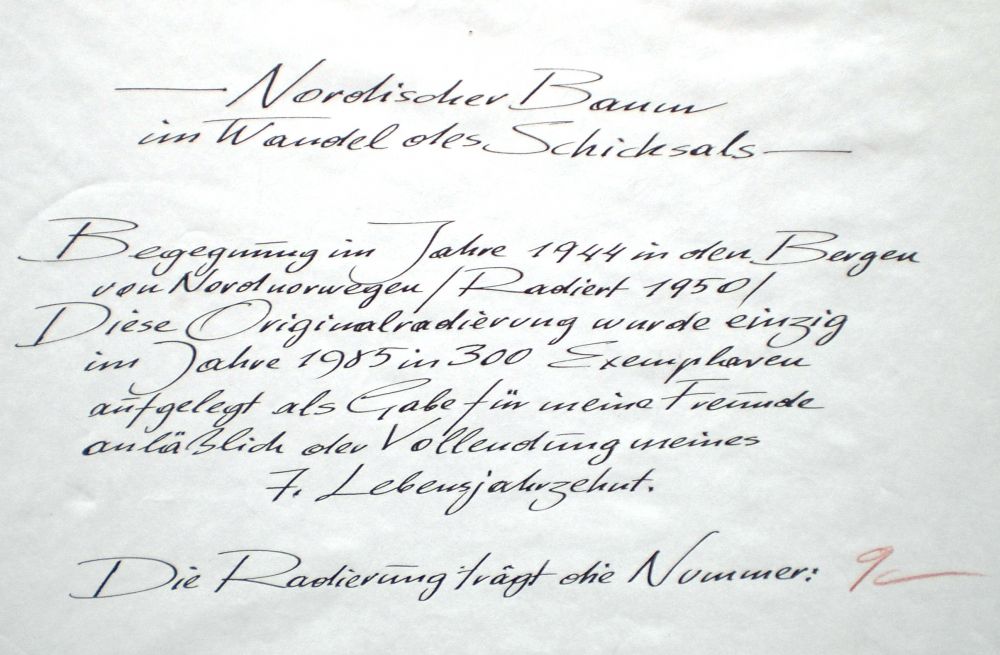 — Nordischer Baum
im Wandel des Schicksals —
Begegnung im Jahre 1944 in den Bergen
von Nordnorwegen / Radiert 1950 /
Diese Originalradierung wurde einzig
im Jahre 1985 in 300 Exemplaren
aufgelegt als Gabe für meine Freunde
anläßlich der Vollendung meines
7. Lebensjahrzehnt.
Die Radierung trägt die Nummer: